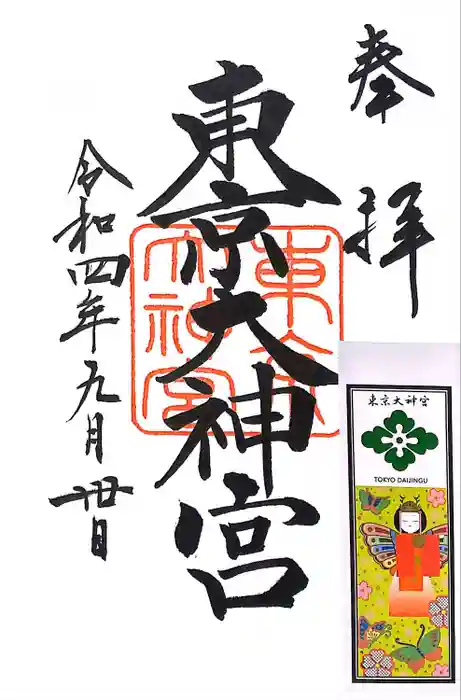 奉拝
東京大神宮
東京大神宮
令和四年九月卅日
東京大神宮
TOKYO DAIJINGU